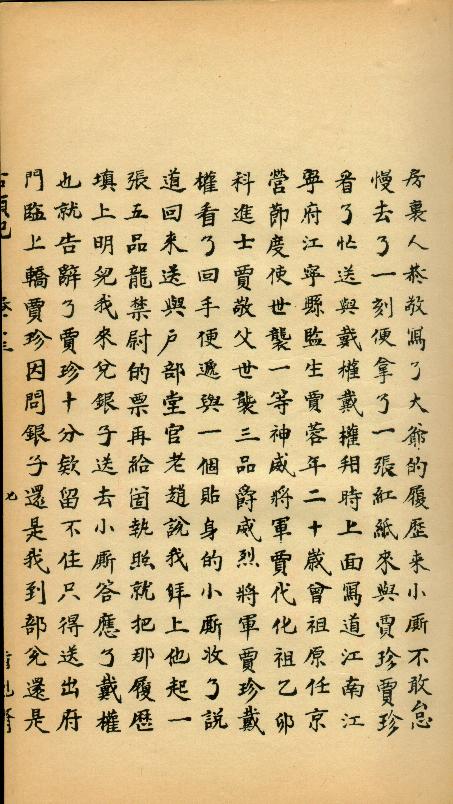 房裏人恭敬寫了大爺的履歷来小厮不敢怠
慢去了一刻便拿了一張紅紙來與賈珍賈珍
看了忙送與戴權戴權看時上面寫道江南江
寧府江寧縣監生賈蓉年二十歳曾祖原任京
營節度使世襲一等神威將軍賈代化祖乙卯
科進士賈敬父世襲三品爵威烈將軍賈珍戴
權看了回手便遞與一個貼身的小厮收了說
道回来送與戶部堂官老趙說我拜上他起一
張五品龍禁尉的票再給箇執照就把那履歷
填上明兒我来兌銀子送去小厮答應了戴權
也就告辭了賈珍十分欵留不住只得送出府
門臨上轎賈珍因問銀子還是我到部兌還是